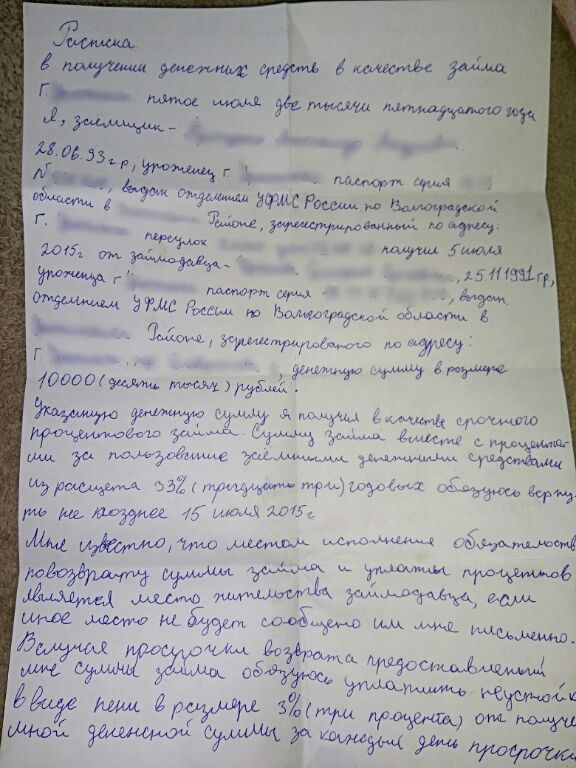 Расписка
в получении денежных средств в качестве займа
Г. пятое июля две тысячи пятнадцатого года
Я, заёмщик -
28.06.93 г.р, уроженец г. паспорт серия
№ , выдан отделением УФМС России по Волгоградской
области в Районе, зарегистрированный по адресу:
Г. переулок получил 5 июля
2015г от займодавца - , 25.11 1991 гр,
уроженца г паспорт серия , выдан
отделением УФМС России по Волгоградской области в
Районе, зарегистрированого по адресу:
Г. , денежную сумму в размере
10000 (десять тысяч) рублей.
Указаную денежную сумму я получил в качестве срочного
процентового займа. Сумму займа вместе с процента-
ми за пользование заёмными денежными средствами
из расщета 33% (тридцать три) годовых обязуюсь верну-
ть не позднее 15 июля 2015г.
Мне известно, что местом исполнения обязательств
повозврату суммы займа и уплаты процентов
является место жительства займодавца, если
иное место не будет сообщено им мне письменно.
Вслучае просрочки возврата предоставленый
мне суммы займа обязуюсь уплатить неустойк
в виде пени в размере 3% (три процента) от получе
мной денежной суммы за каждый день просрочки